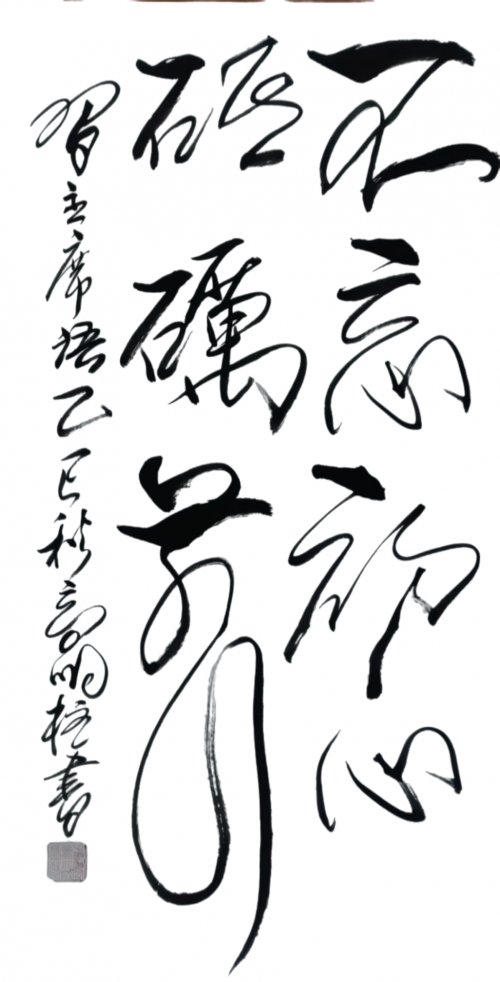 不忘初心
砥砺前行
習主席语乙巳秋高明柱書